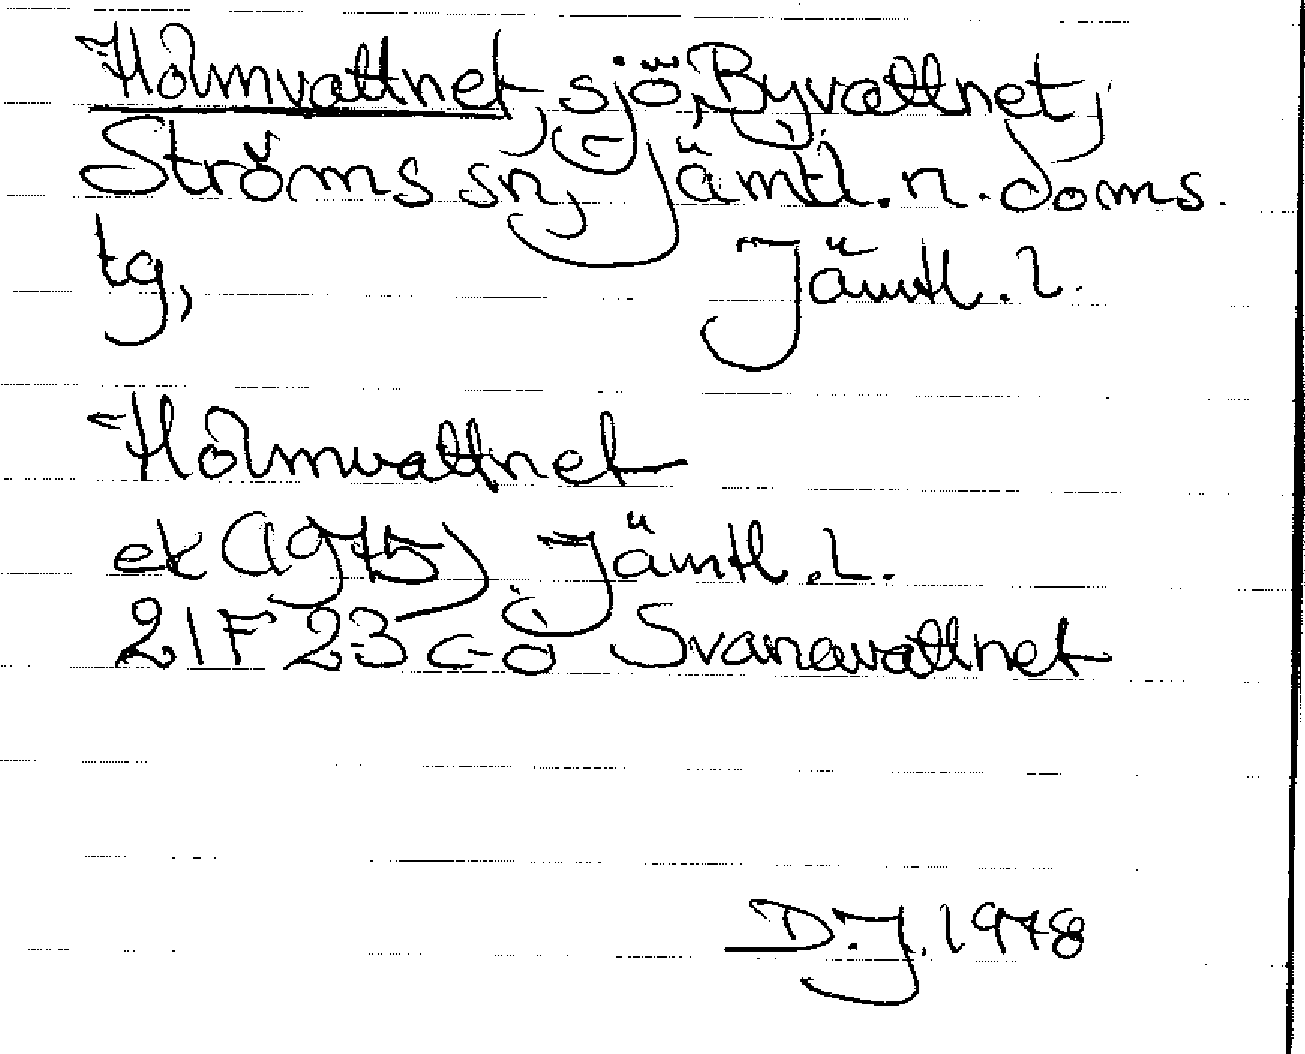 Holmvattnet, sjö, Byvattnet,
Ströms sn, Jämtl. n. doms.
tg, Jämtl. l.
Holmvattnet
ek (1975). Jämtl. L.
21F 23 c-d Svanavattnet
D.J. 1978